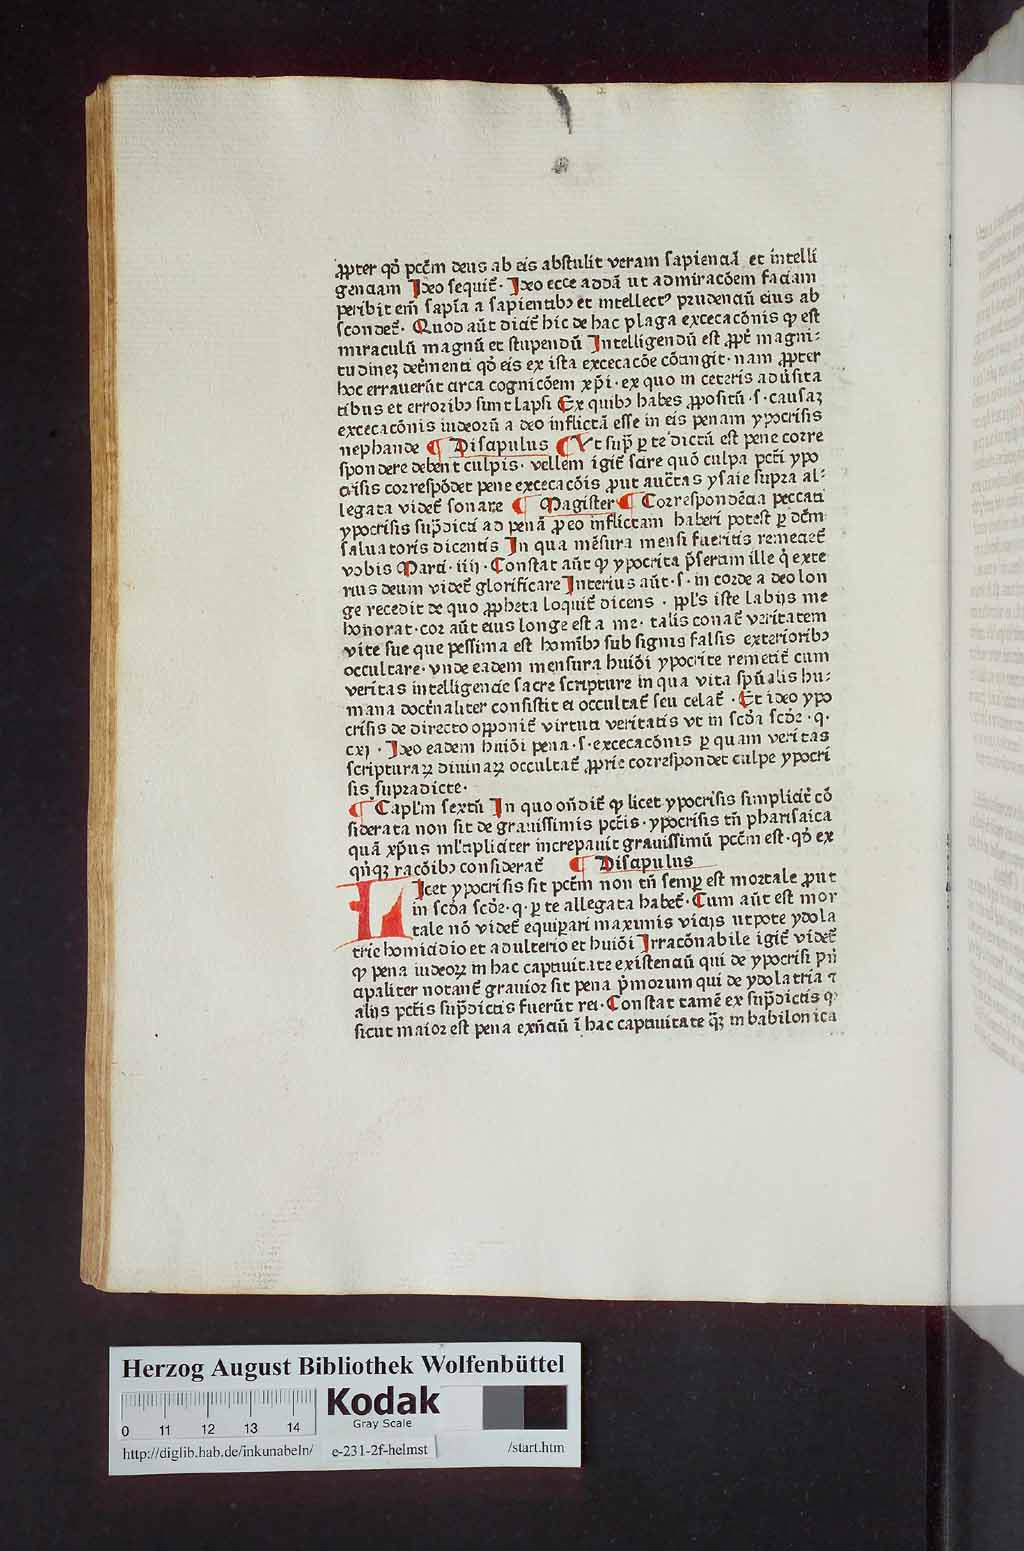 ꝓpter qð pctm̄ deus ab eis abstulit veram sapienciā et intelli
genciam Ideo sequit̄ · Ideo ecce addā ut admiracōem faciam
peribit em̄ sapīa a sapientibꝫ et intellectꝰ prudenciū eius ab
scondet̄ · Quod aūt dicit̄ hic de hac plaga excecacōnis ꝙ est
miraculū magnū et stupendū Intelligendū est ꝓpt̄ magni-
tudineꝫ det̄menti qð eis ex ista excecacōe cōtingit · nam ꝓpter
hoc errauerūt circa cognicōem xp̄i · ex quo in ceteris aduersita
tibus et erroribꝫ sunt lapsi Ex quibꝫ habes ꝓpositū · s · causaꝫ
excecacōnis iudeorū a deo inflictā esse in eis penam ypocrisis
nephande ¶ Discipulus ¶ Vt sup̄ ꝑ te dictū est pene corre
spondere debent culpis · vellem igit̄ scire quō culpa pcti ypo
crisis correspōdet pene excecacōis ꝓut auctas ysaie supra al-
legata videt̄ sonare ¶ Magister ¶ Correspondēcia peccati
ypocrisis sup̄dicti ad penā ꝓ eo inflictam haberi potest ꝑ dcm̄
saluatoris dicentis In qua mēsura mensi fueritis remeciet̄
vobis Marci · iiij · Constat aūt ꝙ ypocrita p̄sertim ille q̇ exte
rius deum videt̄ glorificare Interius aūt · s · in corde a deo lon
ge recedit de quo ꝓpheta loquit̄ dicens · ppl's iste labijs me
honorat · cor aūt eius longe est a me · talis conat̄ veritatem
vite sue que pessima est homībꝫ sub signis falsis exterioribꝫ
occultare · vnde eadem mensura huiōi ypocrite remetit̄ cum
veritas intelligencie sacre scripture in qua vita spūalis hu-
mana doct̄naliter consistit ei occultat̄ seu celat̄ · Et ideo ypo
crisis de directo opponit̄ virtuti veritatis vt in scda scde · q ·
cxj · Ideo eadem huiōi pena · s · excecacōnis ꝑ quam veritas
scripturaꝝ diuinaꝝ occultat̄ ꝓprie correspondet culpe ypocri
sis supradicte ·
¶ Capl'm sextū In quo oñdit̄ ꝙ licet ypocrisis simplicit̄ cō
siderata non sit de grauissimis pctis · ypocrisis tñ pharisaica
quā xp̄us ml'tipliciter increpauit grauissimū pctm̄ est · qð ex
qn̄qꝫ racōibꝫ considerat̄ ¶ Discipulus
LIcet ypocrisis sit pctm̄ non tñ semꝑ est mortale ꝓut
in scda scde · q · ꝑ te allegata habet̄ · Cum aūt est mor
tale nō videt̄ equiꝑari maximis vicijs utpote ydola
trie homicidio et adulterio et huiōi Irracōnabile igit̄ videt̄
ꝙ pena iudeoꝝ in hac captiuitate existenciū qui de ypocrisi pn̄
cipaliter notant̄ grauior sit pena p̄morum qui de ydolatria ⁊
alijs pctis sup̄dictis fuerūt rei · Constat tamē ex sup̄dictis ꝙ
sicut maior est pena exñciū ī hac captiuitate q̄ꝫ in babilonica
Herzog August Bibliothek Wolfenbüttel
0 11 12 13 14
Kodak
Gray Scale
http://diglib.hab.de/inkunabeln/ e-231-2f-helmst /start.htm